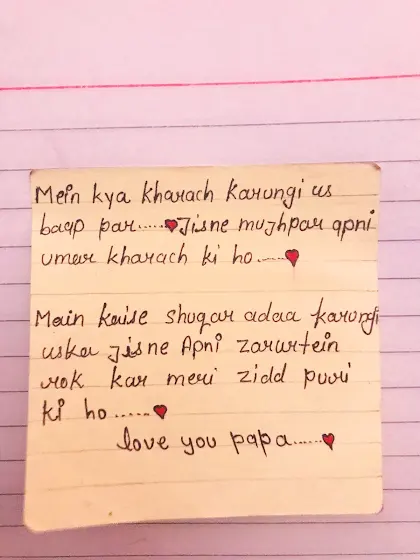 Mein kya kharach karungi us
baap par.....♥Jisne mujhpar apni
umar kharach ki ho.....♥
Main kaise shuqar adaa karungi
uska Jisne Apni zarurtein
rok kar meri zidd puri
ki ho ......♥
love you papa.....♥